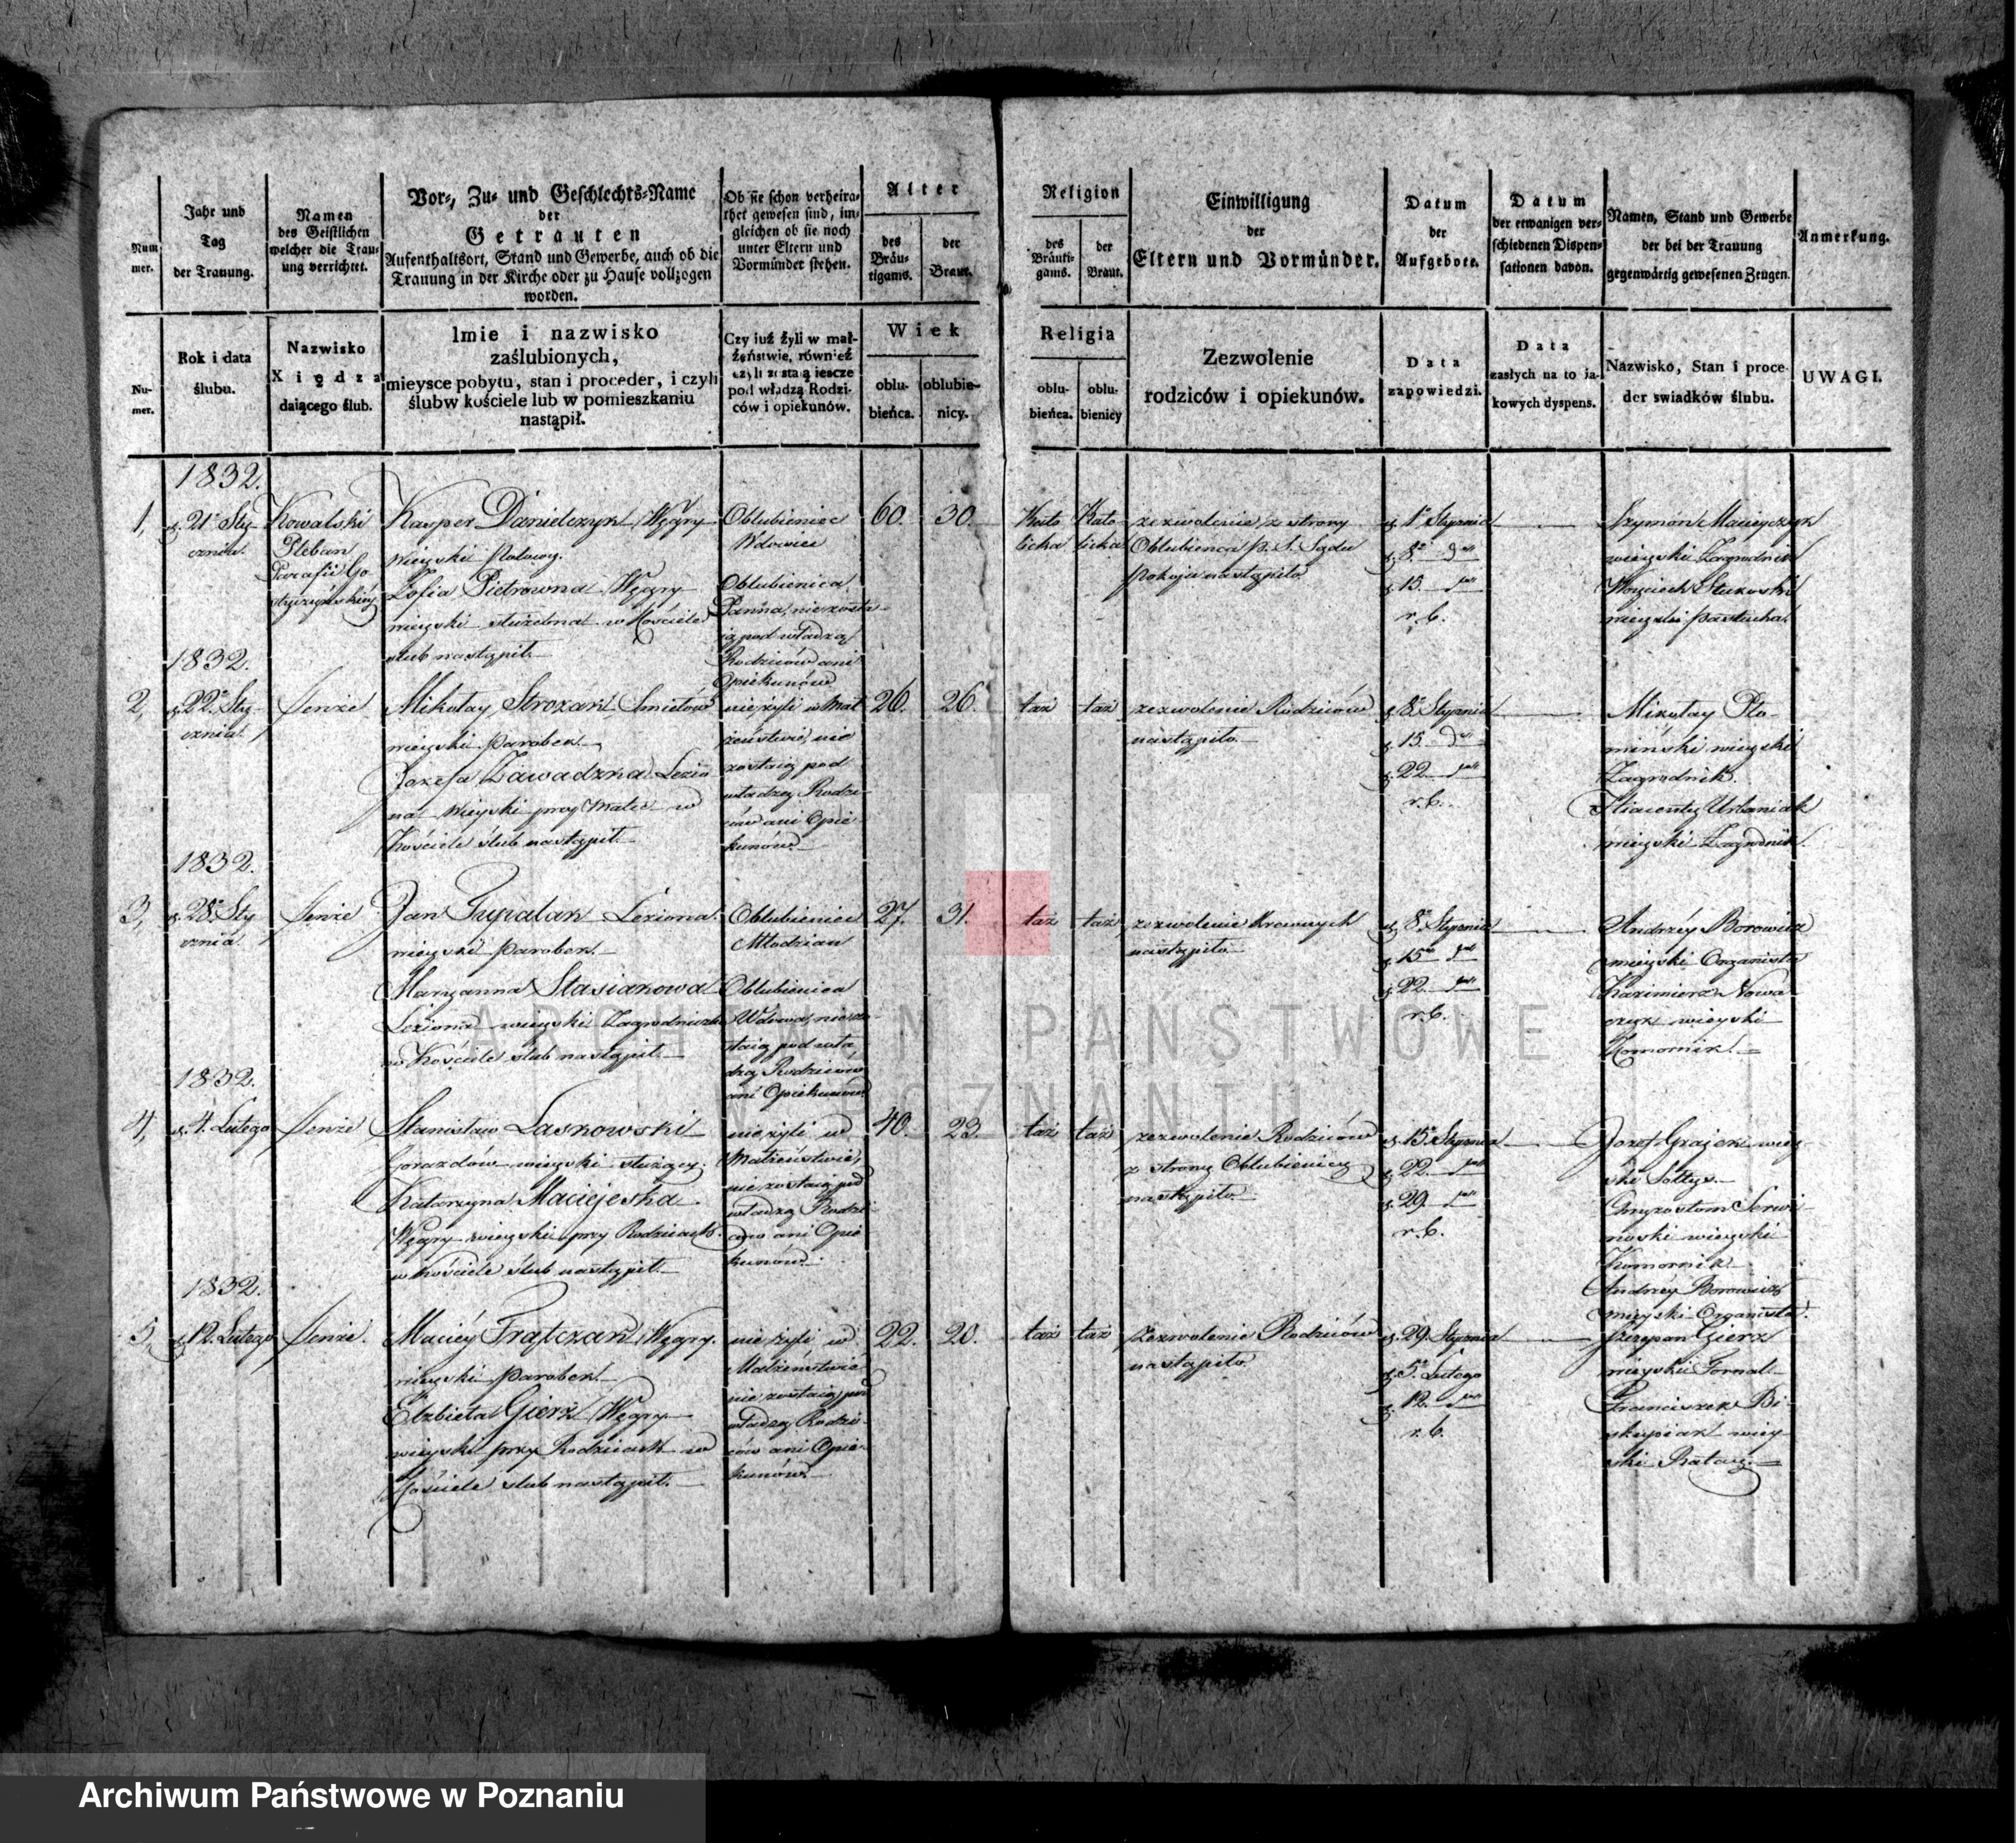 Num
mer.
Jahr und
Tag
der Trauung.
Namen
des Geistlichen
welcher die Trau-
ung verrichtet.
Vor-, Zu- und Geschlechts-Name
der
Getrauten
Aufenthaltsort, Stand und Gewerbe, auch ob die
Trauung in der Kirche oder zu Hause vollzogen
worden.
Ob sie schon verheira-
thet gewesen sind, im-
gleichen ob sie noch
unter Eltern und
Vormünder stehen.
Alter
des
Bräu-
tigams.
der
Braut.
Religion
des
Bräuti-
gams.
der
Braut.
Einwilligung
der
Eltern und Vormünder.
Datum
der
Aufgebote.
Datum
der etwanigen ver-
schiedenen Dispen-
sationen davon.
Namen, Stand und Gewerbe
der bei der Trauung
gegenwärtig gewesenen Zeugen.
Anmerkung.
Nu-
mer.
Rok i data
ślubu.
Nazwisko
Xiędza
daiącego ślub.
Imie i nazwisko
zaślubionych,
mieysce pobytu, stan i proceder, i czyli
ślub w kościele lub w pomieszkaniu
nastąpił.
Czy iuż żyli w mał-
żeństwie, również
czyli zostaią ieszcze
pod władzą Rodzi-
ców i opiekunów.
Wiek
oblu-
bieńca.
oblubie-
nicy.
Religia
oblu-
bieńca.
oblu-
bienicy
Zezwolenie
rodziców i opiekunów.
Data
zapowiedzi.
Data
zaszłych na to ia-
kowych dyspens.
Nazwisko, Stan i proce-
der swiadków ślubu.
UWAGI.
1832.
1, d. 21. Sty-
cznia.
Kowalski
Pleban
Parafii Go-
styczyńskiey
Kasper Danielczyk Węgry
wieyski Połowy.
Zofia Pietrowna Węgry
wieyski służebna w Kościele
ślub nastąpił.
Oblubieniec
Wdowiec
Oblubienica
Panna, nie zosta-
ią pod władzą
Rodziców ani
Opiekunów
60. 30.
Kato
licka
Kato-
licka
zezwolenie z strony
Oblubieńca p. S. Sądu
Pokoju nastąpiło
d. 1. Stycznia
d. 8.
d. 15.
r. b.
Szymon Macieyczyk
wieyski Zagrodnik
Woyciech
wieyski pastucha
1832.
2, d. 22. Sty-
cznia
tenże
Mikołay Strozak
wieyski parobek
Jozefa Zawadzka Lezio
na wieyski przy Matce w
Kościele ślub nastąpił.
nie żyli w Mał
żeństwie, nie
zostaią pod
władzą Rodzi-
ców ani Opie-
kunów
26. 26.
taż taż
zezwolenie Rodziców
nastąpiło.
d. 8. Stycznia
d. 15.
d. 22.
r. b.
Mikołay Pło-
miński wieyski
Zagrodnik.
Hiacenty Urbaniak
wieyski Zagrodnik.
1832.
3, d. 28. Sty
cznia
tenże
Jan Leziona
wieyski parobek.
Maryanna Stasiakowa
Leziona wieyski Zagrodniczka
w Kościele ślub nastąpił.
Oblubieniec
Młodzian
Oblubienica
Wdowa, nie zo-
staią pod wła
dzą Rodziców
ani Opiekunów
27. 31.
taż taż
zezwolenie Krewnych
nastąpiło.
d. 8. Stycznia
d. 15.
d. 22.
r. b.
Andrzéy Borowicz
wieyski Organista
Kazimierz Nowa
czyk wieyski
Komornik.
1832.
4, d. 4. Lutego
tenże
Stanisław Laskowski
Gorazdów wieyski służący.
Katarzyna Maciejeska
Węgry wieyski przy Rodzicach.
w Kościele ślub nastąpił.
nie żyli w
Małżeństwie,
nie zostaią pod
władzą Rodzi-
ców ani Opie
kunów.
40. 23.
taż taż
zezwolenie Rodziców
z strony Oblubienicy
nastąpiło.
d. 15. Stycznia
d. 22.
d. 29.
r. b.
Jozef Grajek wiey-
ski Sołtys.
Chryzostom Serwi-
noski wieyski
Komornik
Andrzéy Borowicz
wieyski Organista.
1832.
5, d. 12. Lutego
tenże.
Maciéy Trąbczak Węgry.
wieyski parobek.
Elzbieta Gierz Węgry
wieyski przy Rodzicach w
Kościele ślub nastąpił.
nie żyli w
Małżeństwie
nie zostaią pod
władzą Rodzi-
ców ani Opie-
kunów
22. 20.
taż taż
Zezwolenie Rodziców
nastąpiło
d. 29. Stycznia
d. 5. Lutego
d. 12.
r. b.
Szczepan Gierz
wieyski Fornal.
Franciszek Bi-
skupiak wiey
ski Ratay.
ARCHIWUM PAŃSTWOWE
W POZNANIU
Archiwum Państwowe w Poznaniu